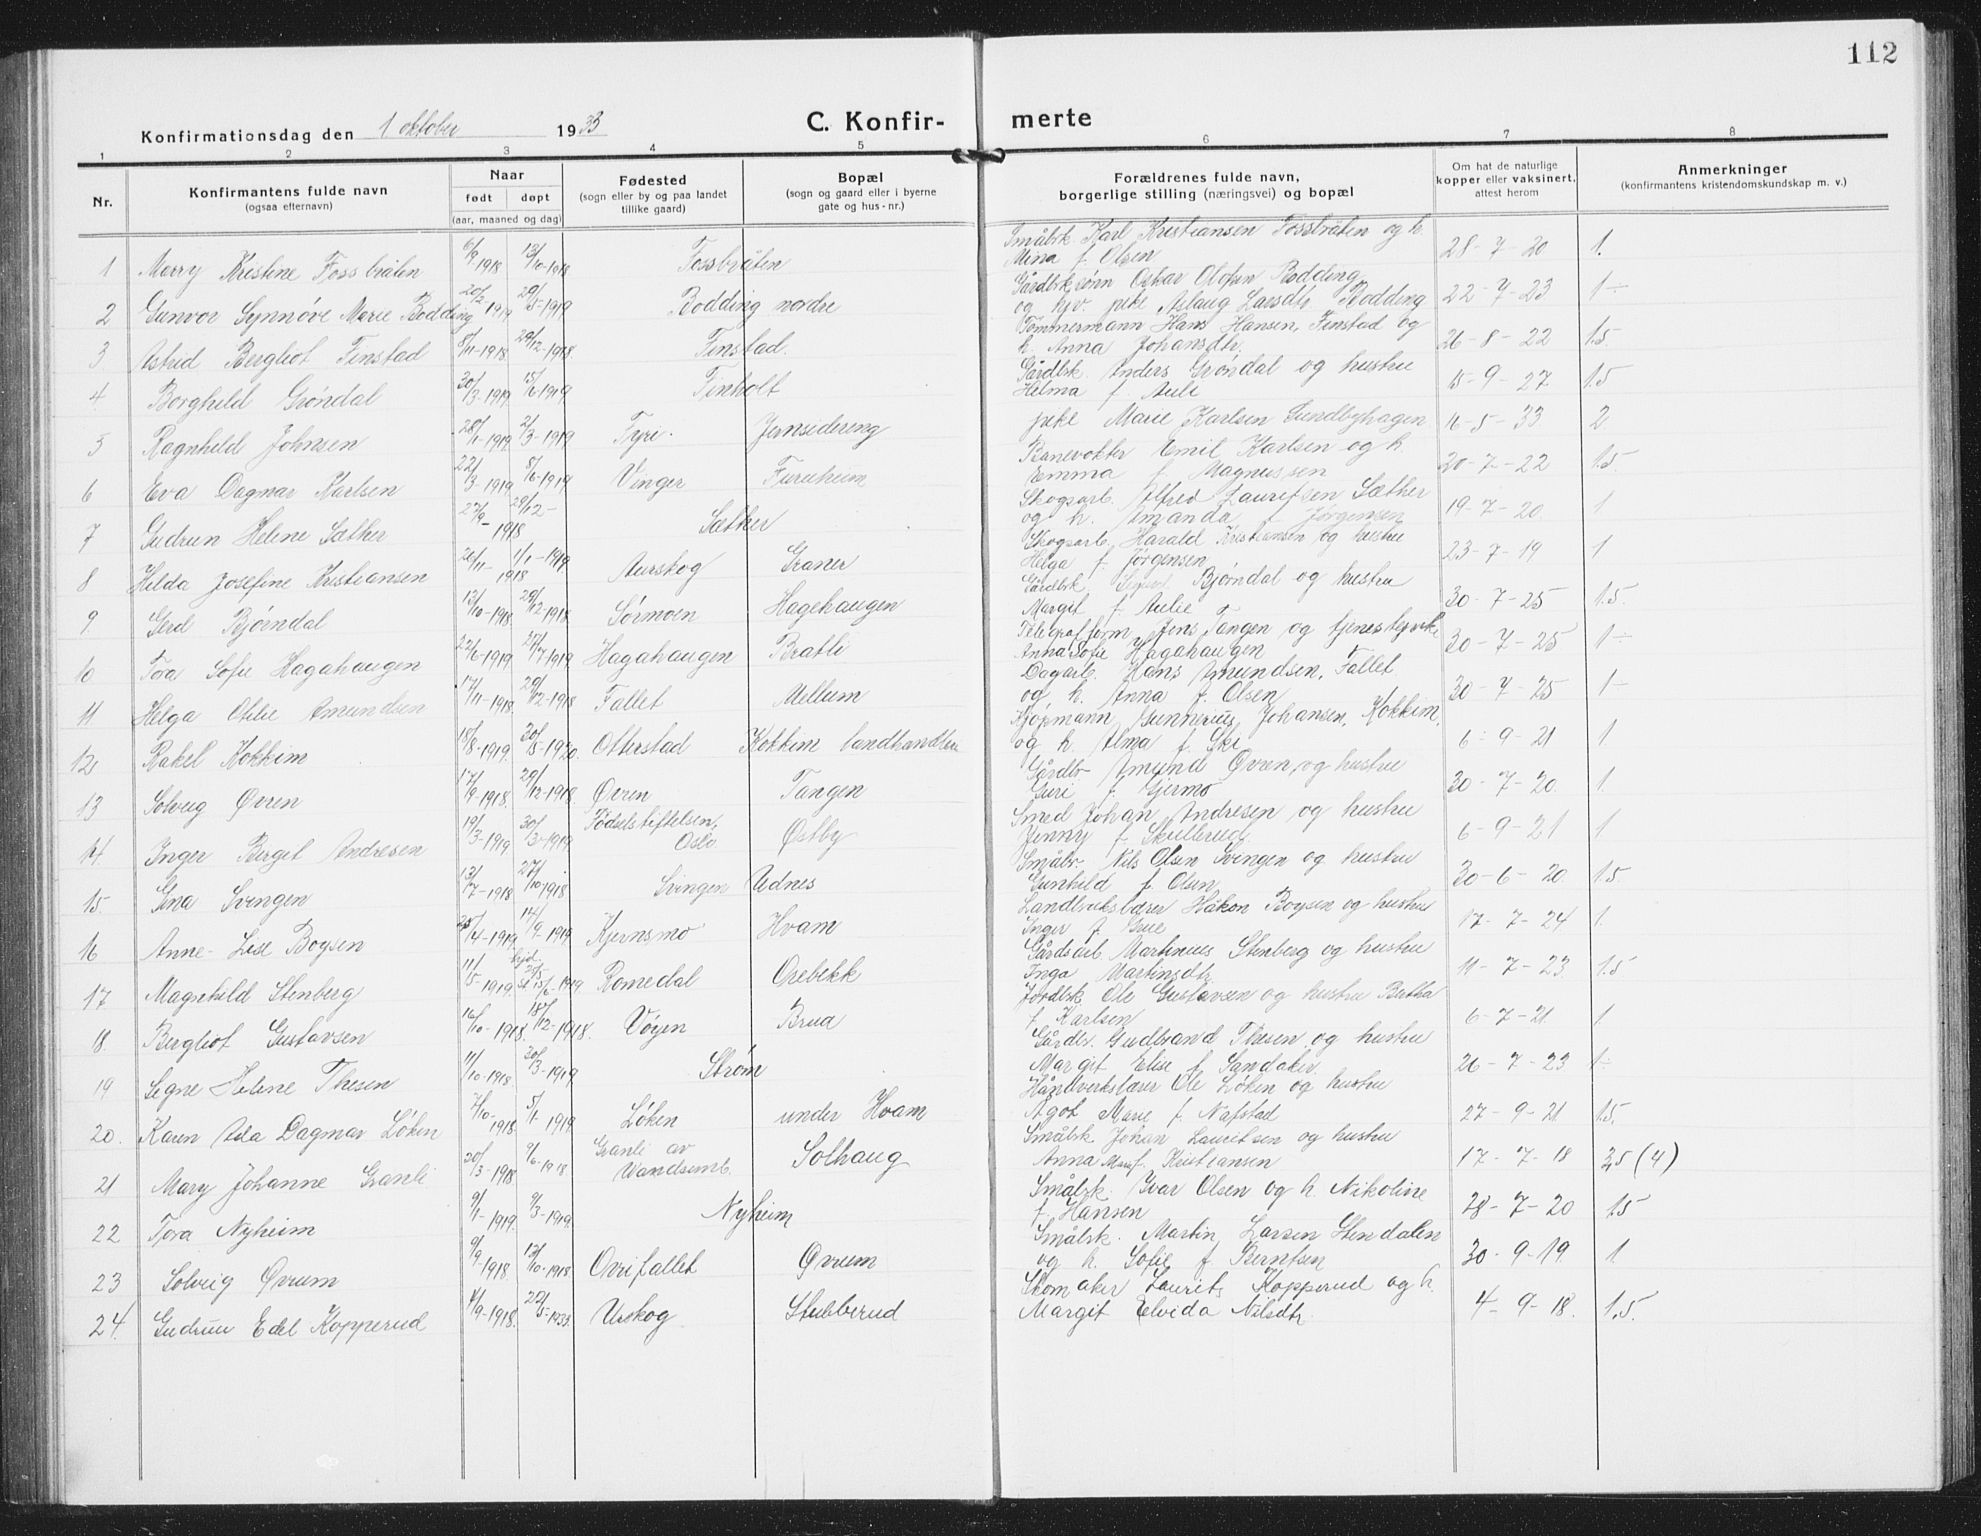 112
Konfirmationsdag den 1 oktober 1933 C. Konfirmerte
1 2 3 4 5 6 7 8
Nr. Konfirmantens fulde navn (ogsaa efternavn) Naar født døpt (aar, maaned og dag) Fødested (sogn eller by og paa landet tillike gaard) Bopæl (sogn og gaard eller i byerne gate og hus-nr.) Forældrenes fulde navn, borgerlige stilling (næringsvei) og bopæl Om hat de naturlige kopper eller vaksinert, attest herom Anmerkninger (konfirmantens kristendomskundskap m. v.)
1 Marry Kristine Fossbråten 6/9-1918 13/10-1918 Fossbråten Småbrk. Karl Kristiansen Fossbråten og h. Mina f. Olsen 28-7-20 1.
2 Gunvor Synnöve Marie Bodding 20/2 1919 29/5-1919 Bodding nordre Gårdbrk.sönn Oskar Olafsen Bodding og hjv. pike Aslaug Larsdtr. Bodding 22-7-23 1÷
3 Astrid Bergliot Finstad 8/11-1918 29/12-1918. Finstad. Tömmermann Hans Hansen, Finstad og h. Anna Johansdtr. 26-8-22 1.5
4 Borghild Gröndal 30/3-1919 15/6-1919 Finholt Gårdbrk. Anders Gröndal og hustru Helma f. Auli 15-9-27 1.5
5 Ragnhild Johnsen 28/1-1919 2/3-1919 Fyri. Jernsidereng pike Marie Karlsen Sundbyhagen 16-5-33 2
6 Eva Dagmar Karlsen 22/3-1919 8/6-1919 Vinger Furuheim Banevokter Emil Karlsen og h. Emma f. Magnussen 20-7-22 1.5.
7 Gudrun Helene Sæther 27/9- 29/12- 1918 Sæther Skogsarb. Alfred Lauritsen Sæther og h. Amanda f. Jörgensen 19-7-20 1
8 Hilda Josefine Kristiansen 26/11-1918 1/1-1919 Aurskog Graner Skogsarb. Harald Kristiansen og hustru Helga f. Jørgensen 23-7-19 1
9. Gerd Bjørndal 13/10-1918 29/12-1918. Sörmoen Hagehaugen Gårdbrk. Bjørndal og hustru Margit f. Aulie 30-7-25 1.5.
10 Toa Sofie Hagahaugen 22/6-1919 27/7-1919 Hagahaugen Bratli Telegrafform. Jens Tangen og tjenestepike Anna Sofie Hagahaugen 30-7-25 1÷
11 Helga Otilie Amundsen 17/11-1918. 29/12-1918 Fallet Mellum Dagarb. Hans Amundsen, Fallet og h. Anna f. Olsen 30-7-25 1-
12 Rakel Kokkim 15/8-1919. 30/5-1920. Otterstad Kokkim landhandleri Kjöpmann Gunnerius Johansen, Kokkim, og h. Alma f. Ski 6-9-21 1.
13 Solveig Øvren 17/9-1918. 29/12-1918. Øvren Tangen Gårdbr. Amund Øvren, og hustru Guri f. Gjermo 30-7-20. 1.
14. Inger Berget Andresen 19/3-1919 30/3-1919 Födselstiftelsen, Oslo Østby Smed Johan Andresen og hustru Jenny f. Skullerud. 6-9-21 1
15. Gina Svingen 13/7-1918 27/10-1918 Svingen Udnes Småbr. Nils Olsen Svingen og hustru Gunhild f. Olsen 30-6-20. 1.5.
16 Anne-Lise Boysen 25/4-1919. 14/9-1919 Kjernsmo Hvam Landbrukslærer Håkon Boysen og hustru Inger f. Grue 17-7-24 1.
17 Magnhild Stenberg 11/5-1919. hjd. 25/5 st. 15/6-1919 Romedal Orebekk Gårdsarb. Martinius Stenberg og hustru Inga Martinsdtr. 11-7-23 1.5
18. Bergliot Gustavsen 16/10-1918. 18/12-1918. Vöyen Brud Jordbrk. Ole Gustavsen og hustru Bertha f. Karlsen 6-7-21 1.
19 Signe Helene Thesen 11/10-1918 30/3-1919 Ström Gårdbr. Gudbrand Thesen og hustru Margit Elise f. Sandaker 26-7-23 1÷
20. Karen Ada Dagmar Löken 7/10-1918. 5/1-1919 Löken under Hvam Håndverkslærer Ole Löken og hustru Agot Marie f. Nafstad 27-9-21 1.5.
21 Mary Johanne Granli 20/3-1918 9/6-1918 Granli av Wandsemb. Solhaug Småbrk. Johan Lauritsen og hustru Anna f. Kristiansen 17-7-18 3,5 (4)
22 Tora Nyheim 9/1-1919. 9/3-1919. Nyheim Småbrk. Ivar Olsen og h. Nikoline f. Hansen 28-7-20 1.5
23 Solveig Øvrum 9/9-1918. 13/10-1918 Ovrifallet Øvrum Småbrk. Martin Larsen Stendalen og h. Sofie f. Berntsen 30-9-19. 1.
24. Gudrun Edel Kopperud 4/9-1918. 22/5-1933. Urskog Stubberud Skomaker Laurits Kopperud og h. Margit Elvida Nilsdtr. 4-9-18. 1.5.